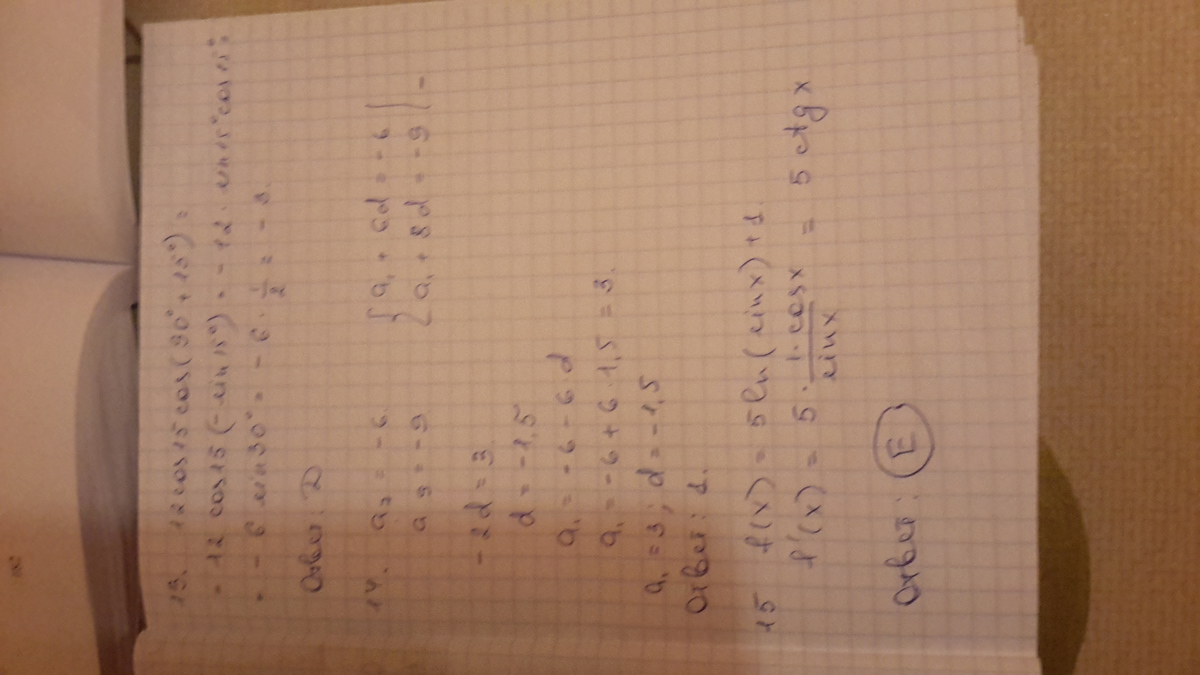 13. 12 cos15 cos(90° + 15°) =
= 12 cos15 (-sin15°) = -12 · sin15° cos15° =
= -6 sin30° = -6 · 1/2 = -3.
Ответ: D
14. a₇ = -6. { a₁ + 6d = -6 |
a₉ = -9 { a₁ + 8d = -9 | -
-2d = 3.
d = -1,5
a₁ = -6 - 6d
a₁ = -6 + 6·1,5 = 3.
a₁ = 3; d = -1,5
Ответ: 1.
15 f(x) = 5 ln(sinx) + 1.
f'(x) = 5 · 1·cosx/sinx = 5 ctg x
Ответ: E